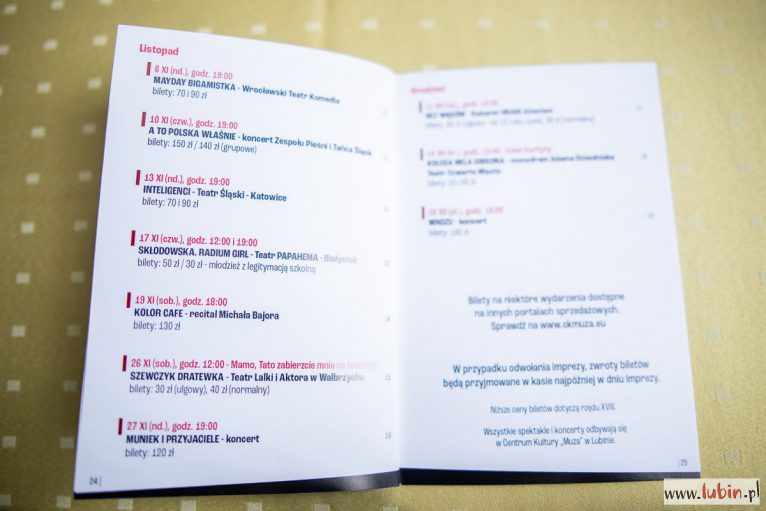 Listopad
6 XI (nd.), godz. 19:00
MAYDAY BIGAMISTKA - Wrocławski Teatr Komedia
bilety: 70 i 90 zł
10 XI (czw.), godz. 19:00
A TO POLSKA WŁAŚNIE - koncert Zespołu Pieśni i Tańca Śląsk
bilety: 150 zł / 140 zł (grupowe)
13 XI (nd.), godz. 19:00
INTELIGENCI - Teatr Śląski - Katowice
bilety: 70 i 90 zł
17 XI (czw.), godz. 12:00 i 19:00
SKŁODOWSKA. RADIUM GIRL - Teatr PAPAHEMA - Białystok
bilety: 50 zł / 30 zł - młodzież z legitymacją szkolną
13
19 XI (sob.), godz. 18:00
KOLOR CAFE - recital Michała Bajora
bilety: 130 zł
14
26 XI (sob.), godz. 12:00 - Mamo, Tato zabierzcie mnie na
SZEWCZYK DRATEWKA - Teatr Lalki i Aktora w Wałbrzychu
bilety: 30 zł (ulgowy), 40 zł (normalny)
15
27 XI (nd.), godz. 19:00
MUNIEK I PRZYJACIELE - koncert
bilety: 120 zł
16
24 |
Grudzień
koncert
bilety: 180 zł
Bilety na niektóre wydarzenia dostępne
na innych portalach sprzedażowych.
Sprawdź na www.ckmuza.eu
W przypadku odwołania imprezy, zwroty biletów
będą przyjmowane w kasie najpóźniej w dniu imprezy.
Niższe ceny biletów dotyczą rzędu XVIII.
Wszystkie spektakle i koncerty odbywają się
w Centrum Kultury „Muza" w Lubinie.
| 25
www.lubin.pl